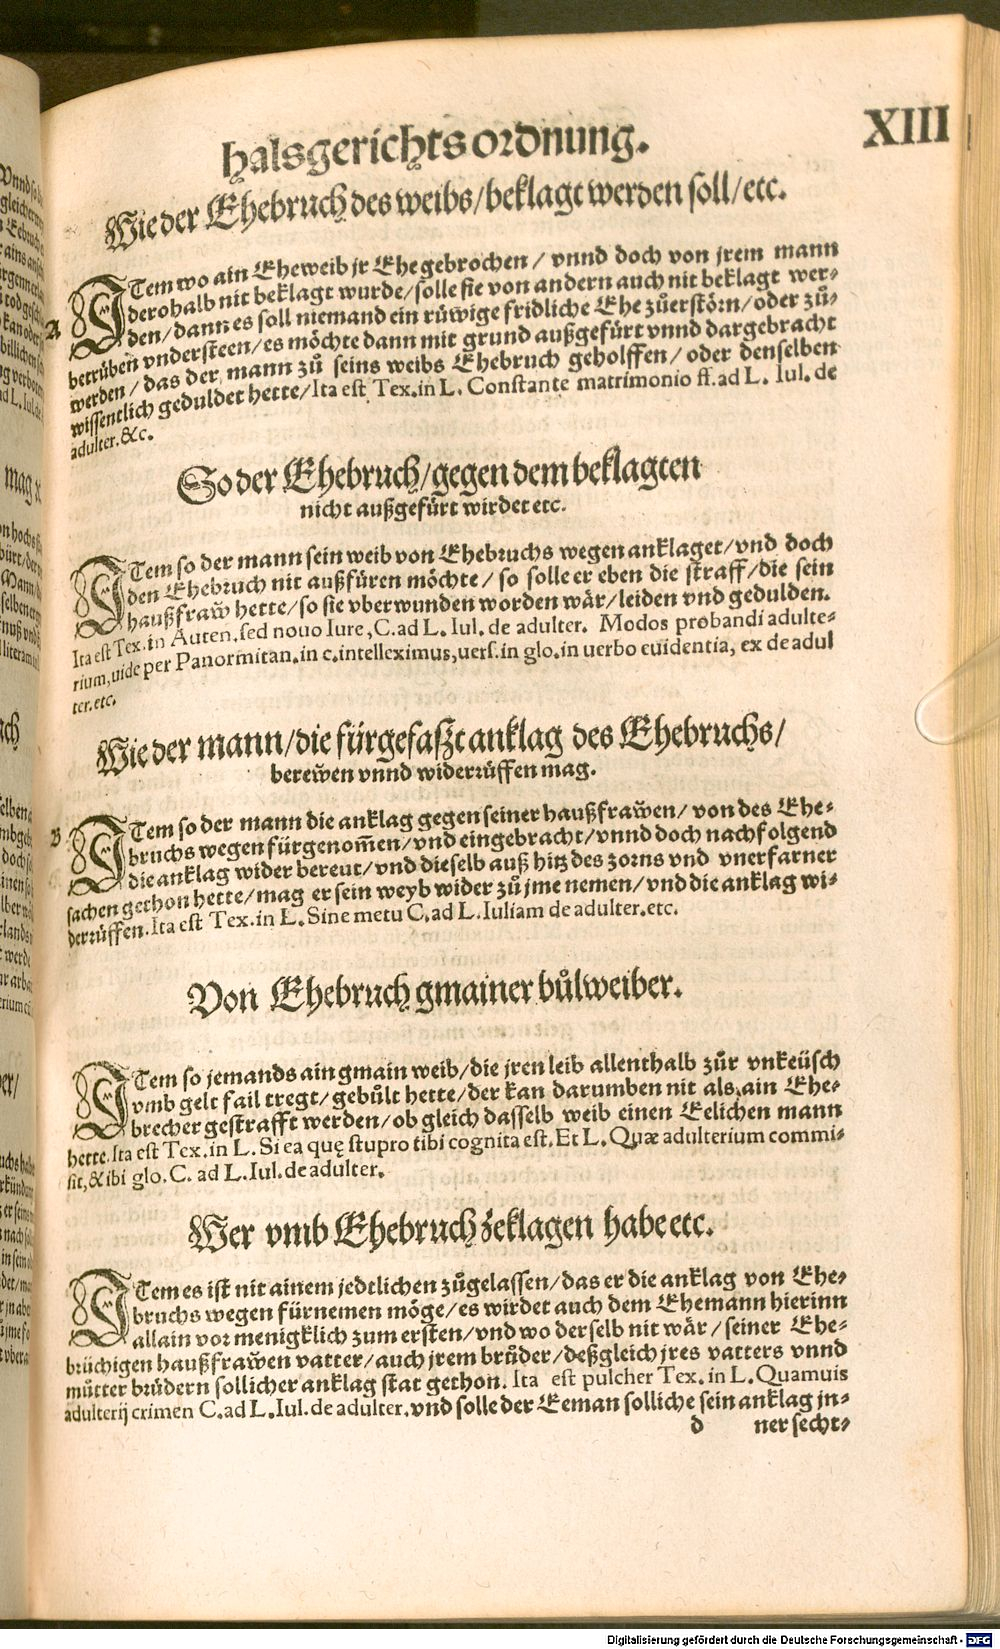 Halsgerichtsordnung.
XIII
Wie der Ehebruch des weibs/beklagt werden soll/etc.
A
ITem wo ain Eheweib jr Ehe gebrochen / vnnd doch von jrem mann
derohalb nit beklagt wurde/solle sie von andern auch nit beklagt wer-
den/dann es soll niemand ein rüwige fridliche Ehe zůerstörn/oder zů-
betrüben vndersteen/es möchte dann mit grund außgefürt vnnd dargebracht
werden / das der mann zů seins weibs Ehebruch geholffen/ oder denselben
wissentlich geduldet hette/Ita est Tex.in L. Constante matrimonio ff.ad L. Iul. de
adulter.&c.
So der Ehebruch/gegen dem beklagten
nicht außgefürt wirdet etc.
ITem so der mann sein weib von Ehebruchs wegen anklaget/vnd doch
den Ehebruch nit außfüren möchte / so solle er eben die straff/die sein
haußfraw̃ hette/so sie vberwunden worden wär/leiden vnd gedulden.
Ita est Tex.in Auten.sed nouo Iure,C.ad L. Iul. de adulter. Modos probandi adulte-
rium,uide per Panormitan.in c.intelleximus,uers.in glo.in uerbo euidentia, ex de adul
ter.etc.
Wie der mann/die fürgefaßt anklag des Ehebruchs/
berew̃en vnnd widerrüffen mag.
B
ITem so der mann die anklag gegen seiner haußfraw̃en/ von des Ehe-
bruchs wegen fürgenom̃en/vnd eingebracht/vnnd doch nachfolgend
die anklag wider bereut/vnd dieselb auß hitz des zorns vnd vnerfarner
sachen gethon hette/mag er sein weyb wider zů jme nemen/vnd die anklag wi-
derrüffen. Ita est Tex.in L. Sine metu C.ad L. Iuliam de adulter.etc.
Von Ehebruch gmainer bůlweiber.
ITem so jemands ain gmain weib/die jren leib allenthalb zůr vnkeüsch
vmb gelt fail tregt/gebůlt hette/der kan darumben nit als ain Ehe-
brecher gestrafft werden/ob gleich dasselb weib einen Eelichen mann
hette.Ita est Tex.in L. Si ea quę stupro tibi cognita est. Et L. Quæ adulterium commi-
sit,&ibi glo.C. ad L.Iul.de adulter.
Wer vmb Ehebruch zeklagen habe etc.
ITem es ist nit ainem jedtlichen zůgelassen/das er die anklag von Ehe-
bruchs wegen fürnemen möge/es wirdet auch dem Ehemann hierinn
allain vor menigklich zum ersten/vnd wo derselb nit wär / seiner Ehe-
brüchigen haußfraw̃en vatter/auch jrem brůder/deßgleich jres vatters vnnd
můtter brüdern sollicher anklag stat gethon. Ita est pulcher Tex. in L. Quamuis
adulterij crimen C.ad L.Iul.de adulter.vnd solle der Eeman solliche sein anklag jn-
d ner secht-
Digitalisierung gefördert durch die Deutsche Forschungsgemeinschaft - DFG